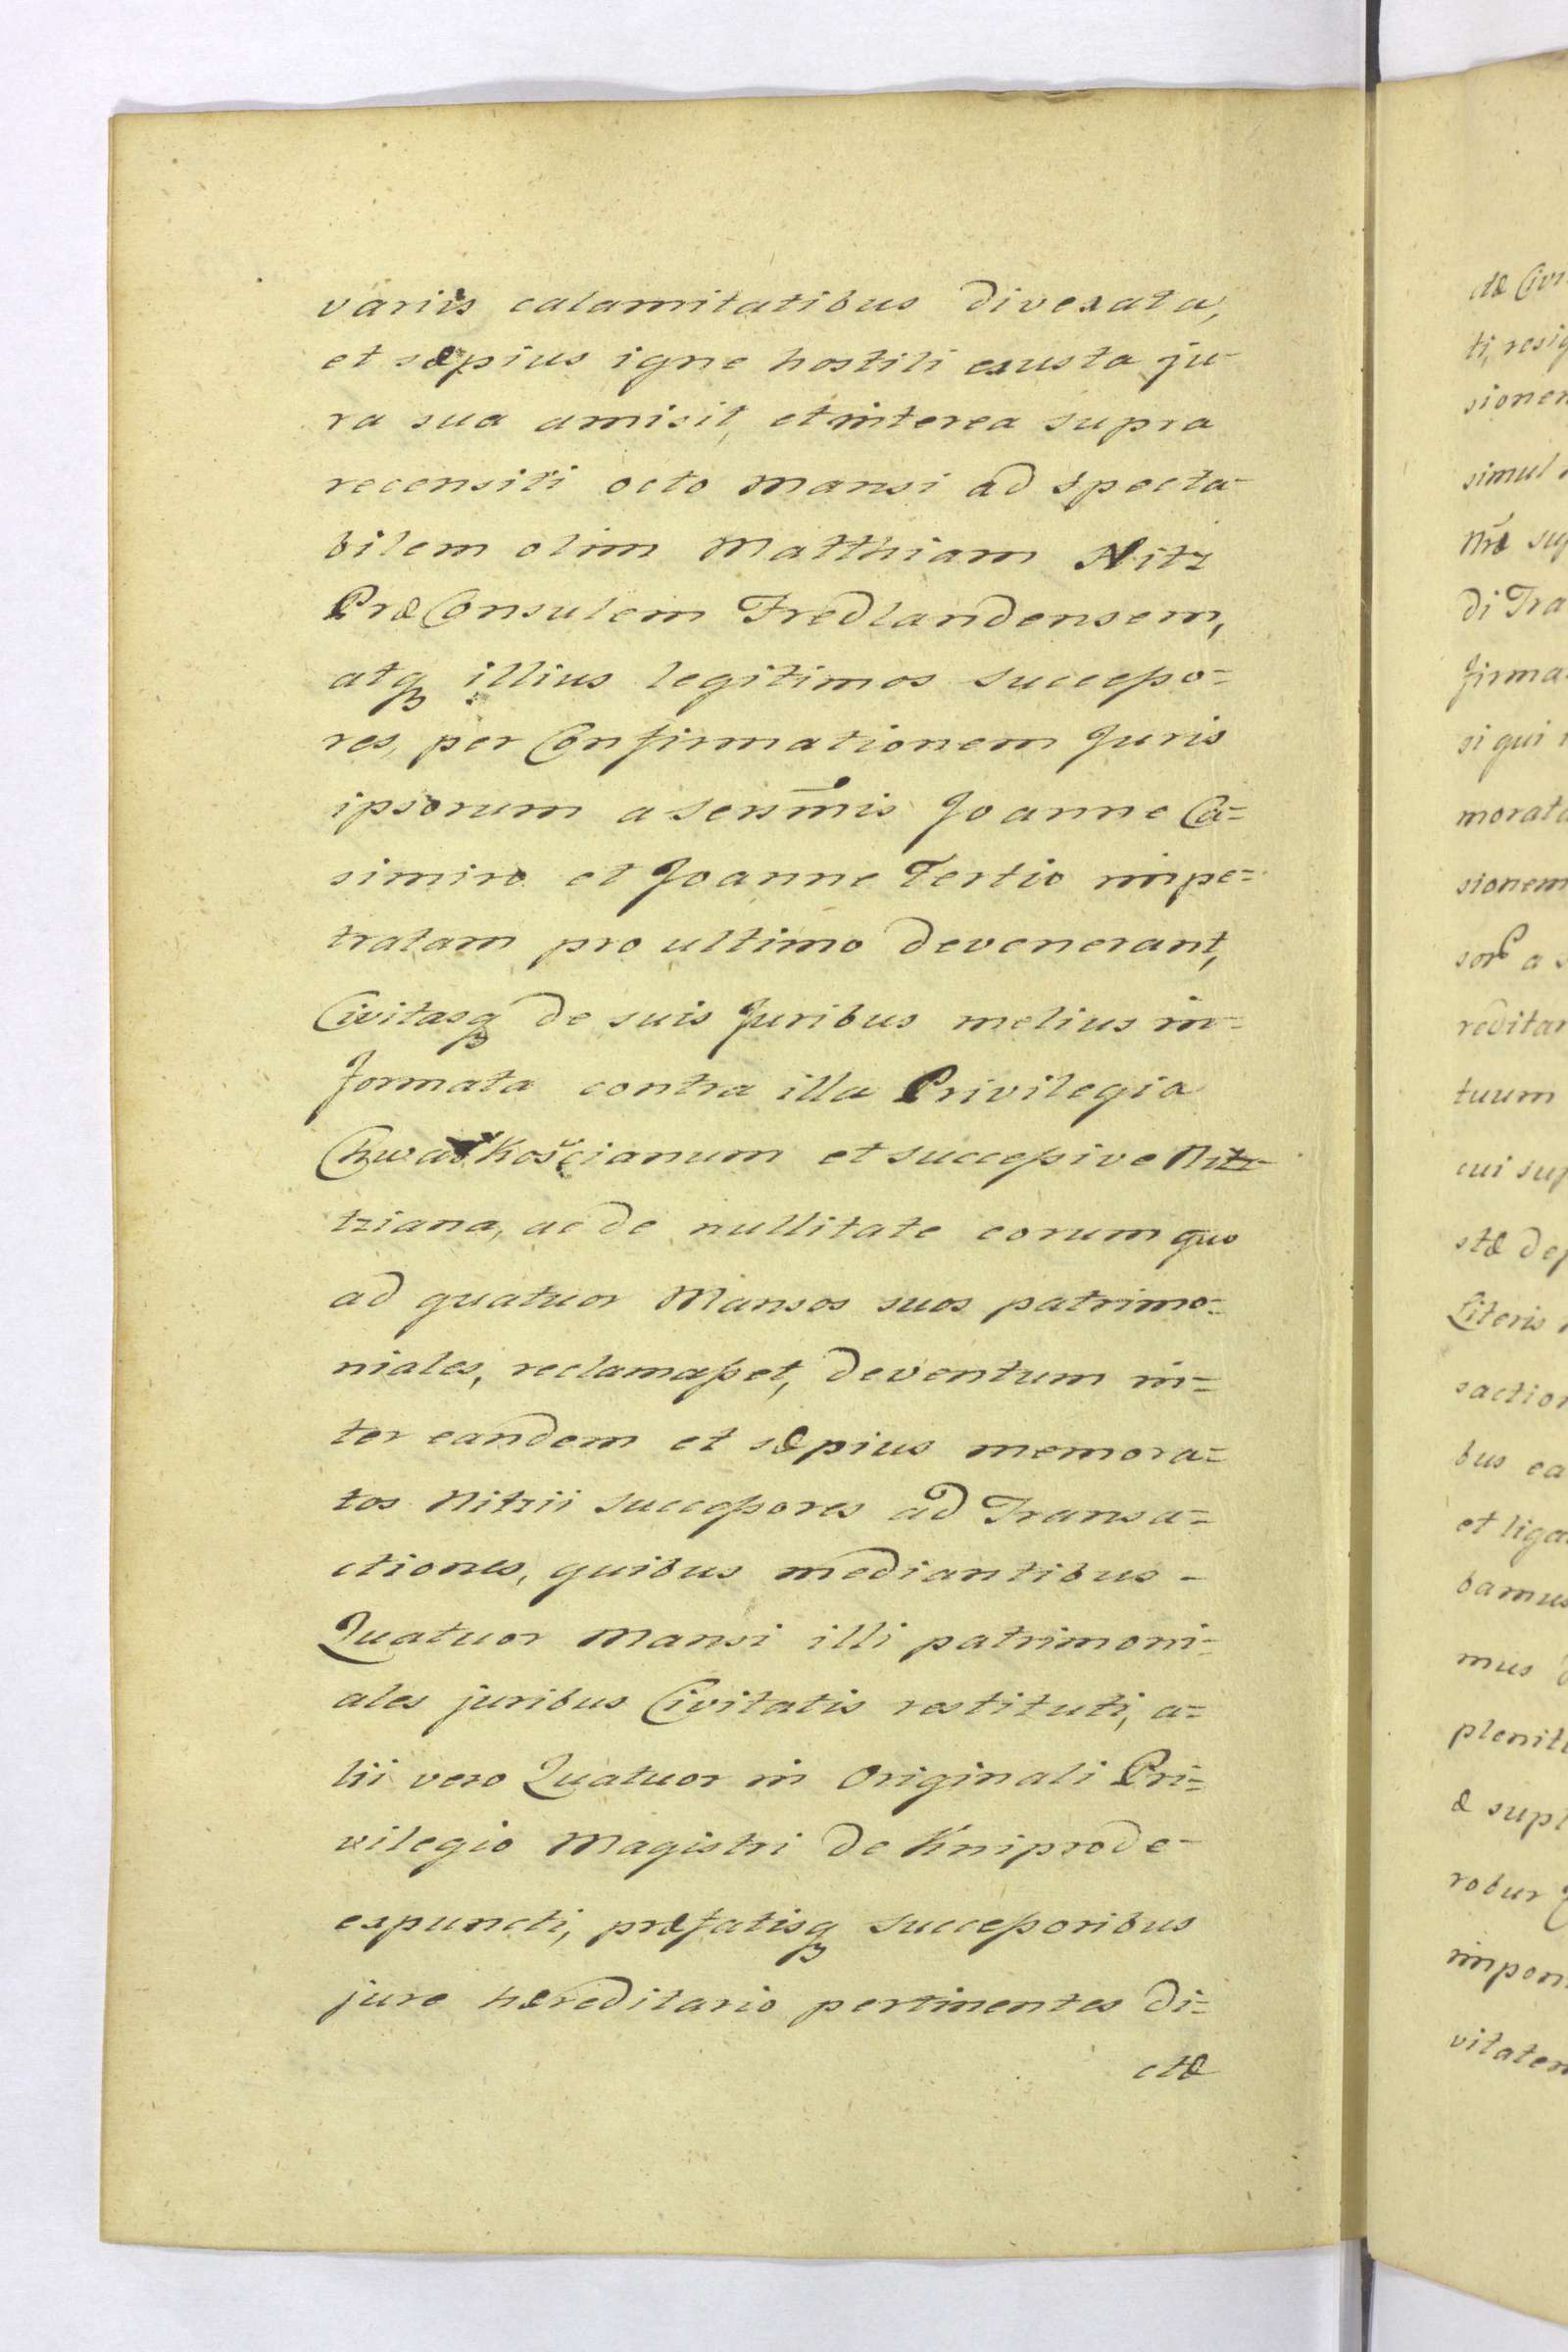 variis calamitatibus divexata,
et sæpius igne hostili exusta ju-
ra sua amisit, et interea supra
recensiti octo Mansi ad specta-
bilem olim Matthiam Nitz
PræConsulem Fredlandensem,
atq₃ illius legitimos successo=
res, per Confirmationem Juris
ipsorum a Serenm̄is Joanne Ca=
simiro et Joanne Tertio impe=
tratam pro ultimo devenerant,
Civitasq₃ de suis Juribus melius in=
formata contra illa Privilegia
et successive
tziana, ac de nullitate eorum quo
ad quatuor Mansos suos patrimo=
niales, reclamasset, deventum in=
ter eandem et sæpius memora=
tos Nitzii successores ad Transa=
ctiones, quibus mediantibus -
Quatuor Mansi illi patrimoni=
ales juribus Civitatis restituti, a=
lii vero Quatuor in Originali Pri=
vilegio Magistri de Kniprode-
expuncti, præfatisq₃ successoribus
jure hæreditario pertinentes di=
ctæ
dæ Civi
ti, resig
sionem
simul
nr̃æ sup
di Tra
firma
si qui
morata
sionem
a s
reditar
tuum
cui sup
stæ dep
Literis
saction
bus ea
et liga
bamus
mus
plenit
æ supl
robur
impon
vitatem